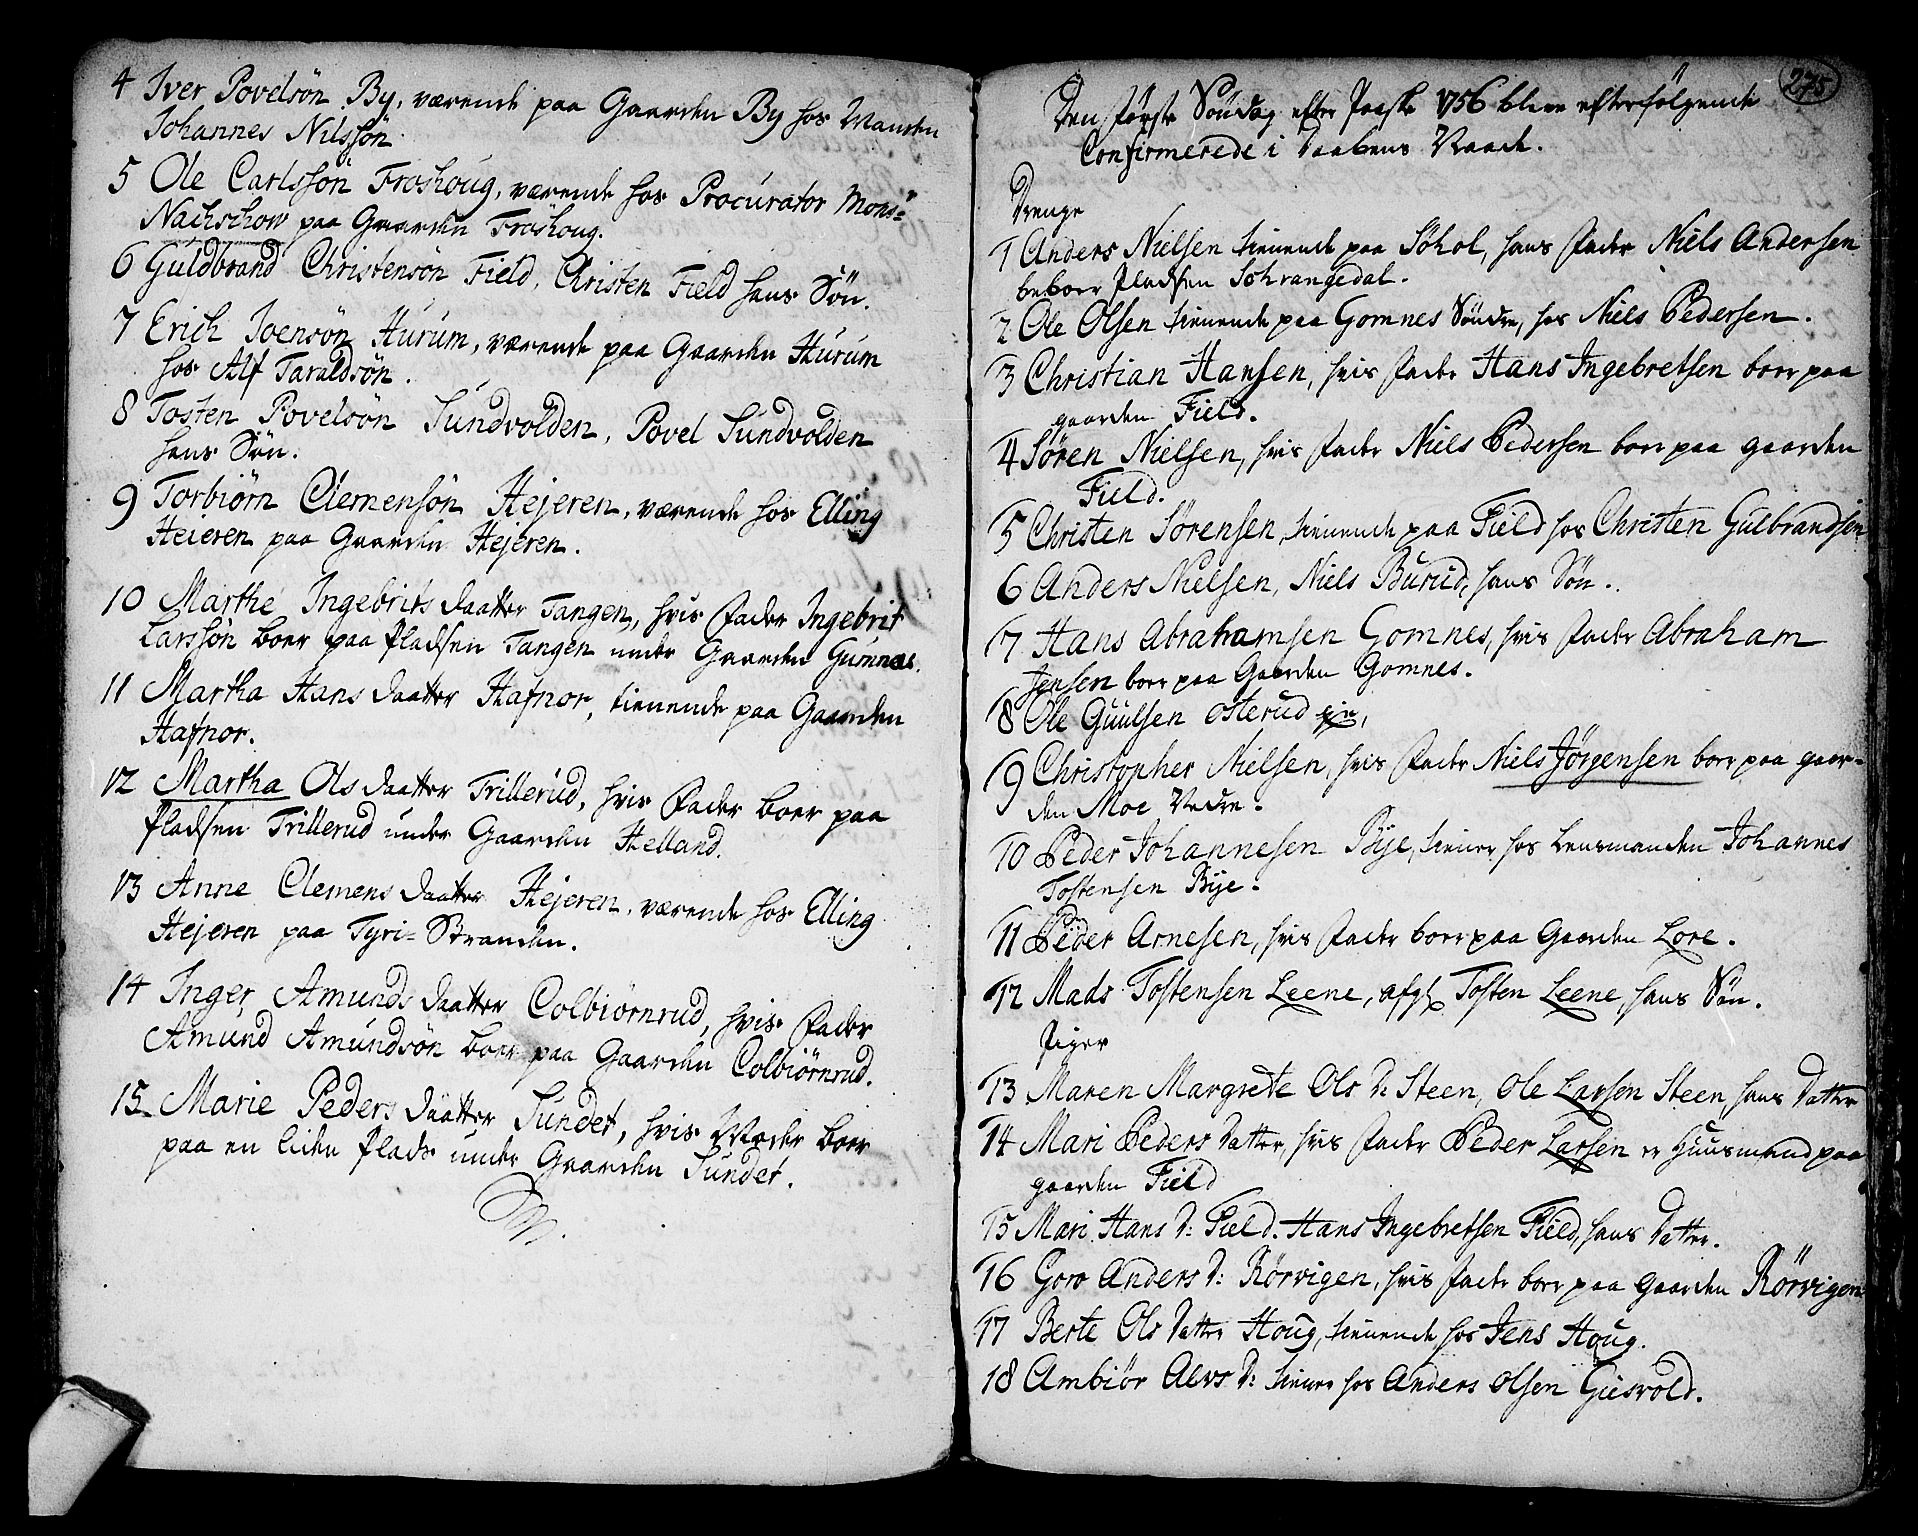 4 Iver Povelsön By, værende paa Gaarden By hos Manden
Johannes Nilssön.
5 Ole Carlssön Froshoug, værende hos Procurator Mons:r
Nachschow paa Gaarden Froshoug.
6 Guldbrand Christensön Field, Christen Field hans Sön.
7 Erich Joensön Hurum, værende paa Gaarden Hurum
hos Alf Taraldsön.
8 Tosten Povelsön Sundvolden, Povel Sundvolden
hans Sön.
9 Torbiörn Clemensön Hejeren, værende hos Elling
Heieren paa Gaarden Hejeren.
10 Marthe Ingebrits daatter Tangen, hvis Fader Ingebrit
Larssön boer paa Pladsen Tangen under Gaarden Gumnæs.
11 Martha Hans daatter Hafnor, tienende paa Gaarden
Hafnor.
12 Martha Ols daatter Trillerud, hvis Fader boer paa
Pladsen Trillerud under Gaarden Helland.
13 Anne Clemens daatter Hejeren, værende hos Elling
Hejeren paa Tyri-Stranden.
14 Inger Amunds daatter Colbiörnrud, hvis Fader
Amund Amundsön boer paa Gaarden Colbiörnrud.
15 Marie Peders daatter Sundet, hvis Moder boer
paa en liden Plads under Gaarden Sundet.
275
Den förste Söndag efter Paaske 1756 bleve efterfölgende
Confirmerede i Daabens Naade.
Drenge
1 Anders Nielsen tienende paa Söhol, hans Fader Niels Andersen
beboer Pladsen Sohrangedal.
2 Ole Olsen tienende paa Gomnes Söndre, hos Niels Pedersen.
3 Christian Hansen, hvis Fader Hans Ingebretsen boer paa
gaarden Field.
4 Sören Nielsen, hvis Fader Niels Pedersen boer paa gaarden
Field.
5 Christen Sörensen, tienende paa Field hos Christen Gulbrandsen
6 Anders Nielsen, Niels Burud, hans Sön.
7 Hans Abrahamsen Gomnes, hvis Fader Abraham
Jensen boer paa Gaarden Gomnes.
8 Ole Guulsen Osterud
9 Christopher Nielsen, hvis Fader Niels Jörgensen boer paa gaar-
den Moe Nedre.
10 Peder Johannesen Bye, tiener hos Lensmanden Johannes
Tostensen Bye.
11 Peder Arnesen, hvis Fader boer paa Gaarden Lore.
12 Mads Tostensen Leene, afg: Tosten Leene, hans Sön.
Piger
13 Maren Margrete Ols D: Steen, Ole Larsen Steen, hans Datter
14 Mari Peders Datter, hvis Fader Peder Larsen er Huusmand paa
gaarden Field
15 Mari Hans D: Field. Hans Ingebretsen Field, hans Datter.
16 Goro Anders D: Rörvigen, hvis Fader boer paa Gaarden Rörvigen
17 Berte Ols Datter Houg, tienende hos Jens Houg.
18 Ambiör Alvs D: tiener hos Anders Olsen Giesvold.